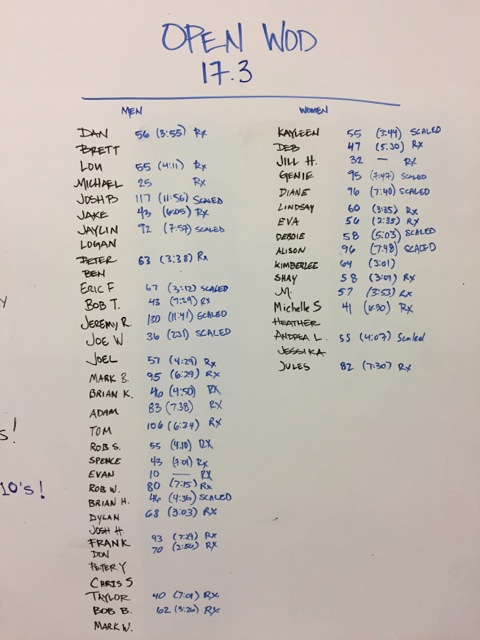 OPEN WOD
17.3
MEN
DAN 56 (3:55) Rx
BRETT
LOU 55 (4:11) Rx
MICHAEL 25 Rx
JOSH B 117 (11:56) SCALED
JAKE 43 (6:05) Rx
JAYLIN 92 (7:57) SCALED
LOGAN
PETER 63 (3:38) Rx
BEN
ERIC F 67 (3:12) SCALED
BOB T. 43 (7:29) Rx
JEREMY R. 130 (11:41) SCALED
JOE W 36 (2:21) SCALED
JOEL 57 (4:29) Rx
MARK B. 95 (6:29) Rx
BRIAN K. 46 (4:50) Rx
ADAM 83 (7:38) Rx
TOM 106 (6:34) Rx
ROB S. 55 (4:10) Rx
SPENCE 43 (7:01) Rx
EVAN 10 — Rx
ROB W. 80 (7:15) Rx
BRIAN H. 46 (4:36) SCALED
DYLAN 68 (3:03) Rx
JOSH H. 93 (7:29) Rx
FRANK 70 (2:56) Rx
DON
PETER Y
CHRIS S
TAYLOR 40 (7:01) Rx
BOB B. 62 (3:26) Rx
MARK W.
WOMEN
KAYLEEN 55 (3:44) SCALED
DEB 47 (5:30) Rx
JILL H. 32 — Rx
GENIE 95 (7:47) SCALED
DIANE 96 (7:40) SCALED
LINDSAY 60 (3:35) Rx
EVA 56 (2:35) Rx
DEBBIE 58 (5:03) SCALED
ALISON 96 (7:48) SCALED
KIMBERLEE 64 (3:01)
SHAY 58 (3:09) Rx
M. 57 (3:53) Rx
Michelle S 41 (6:30) Rx
HEATHER
ANDREA L. 55 (4:07) Scaled
JESSIKA
JULES 82 (7:30) Rx
y
s!
10's!